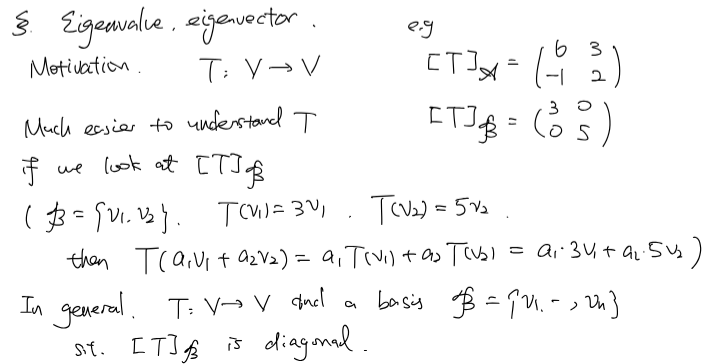 §. Eigenvalue, eigenvector.
Motivation. T: V → V
e.g
[T]_𝒜 = ( 6 3
-1 2 )
Much easier to understand T
if we look at [T]_ℬ
[T]_ℬ = ( 3 0
0 5 )
( ℬ = {v₁, v₂}. T(v₁) = 3v₁ . T(v₂) = 5v₂ .
then T(a₁v₁ + a₂v₂) = a₁T(v₁) + a₂T(v₂) = a₁·3v₁ + a₂·5v₂ )
In general. T: V → V find a basis ℬ = {v₁, -, vₙ}
s.t. [T]_ℬ is diagonal.